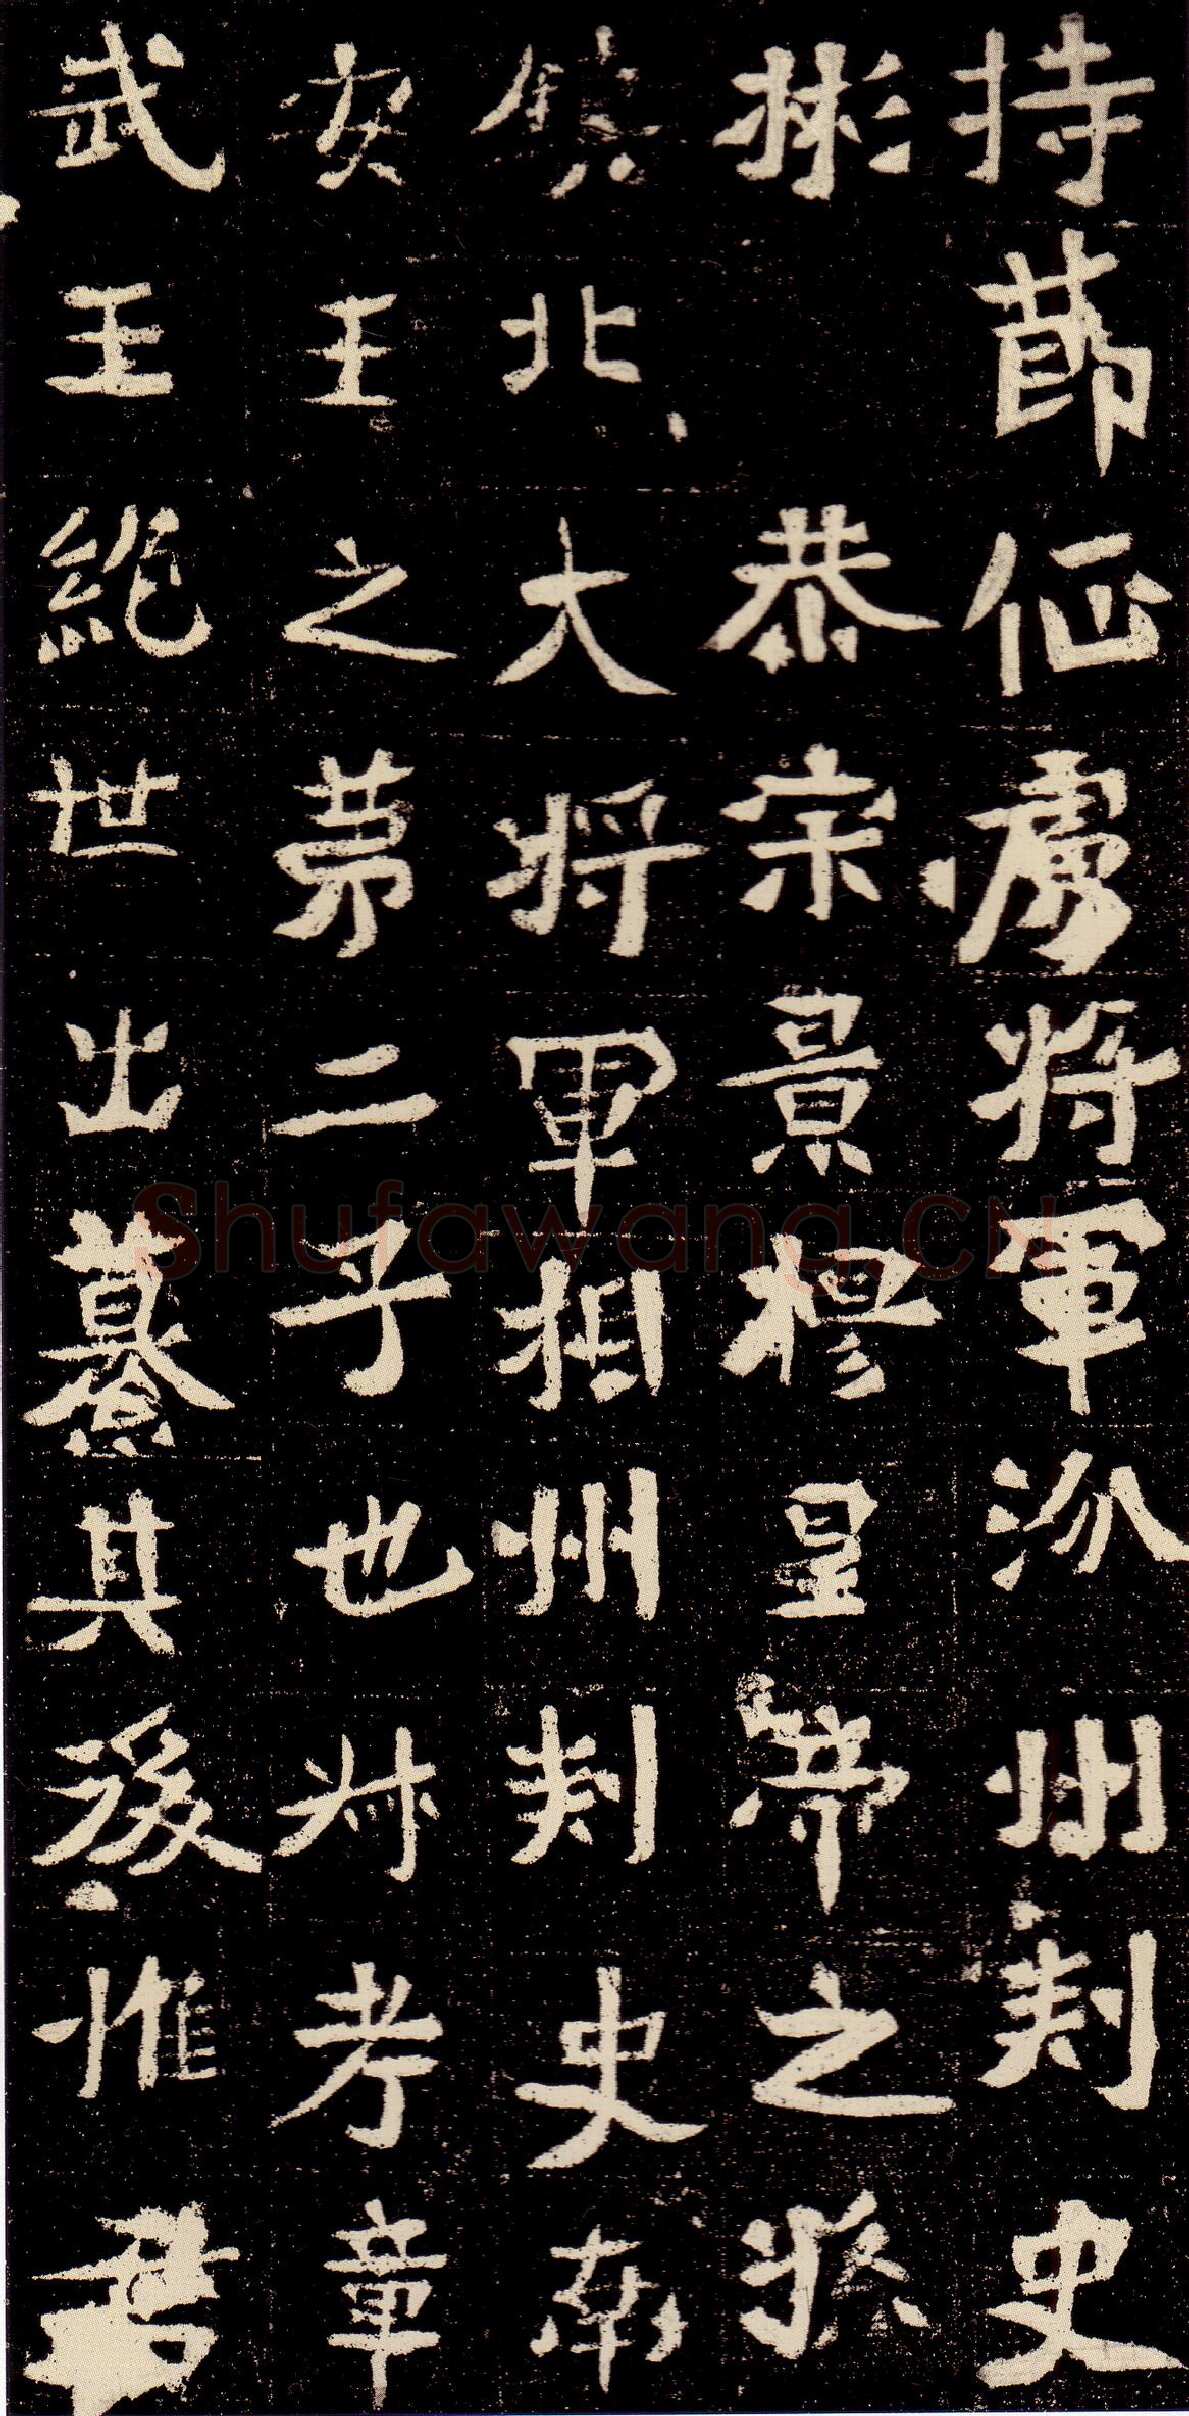 持節征虜將軍汾州刺史
彬恭宗景穆皇帝之孫
鎮北大將軍相州刺史南
安王之第二子也叔考章
武王絕世出纂其後惟君
Shufawang.CN